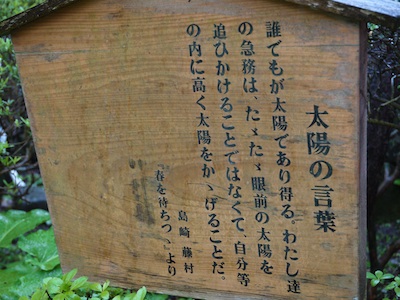 太陽の言葉
誰でもが太陽であり得る。わたし達
の急務は、たゞたゞ眼前の太陽を
追ひかけることではなくて、自分等
の内に高く太陽をかゝげることだ。
島崎藤村
春を待ちつゝより